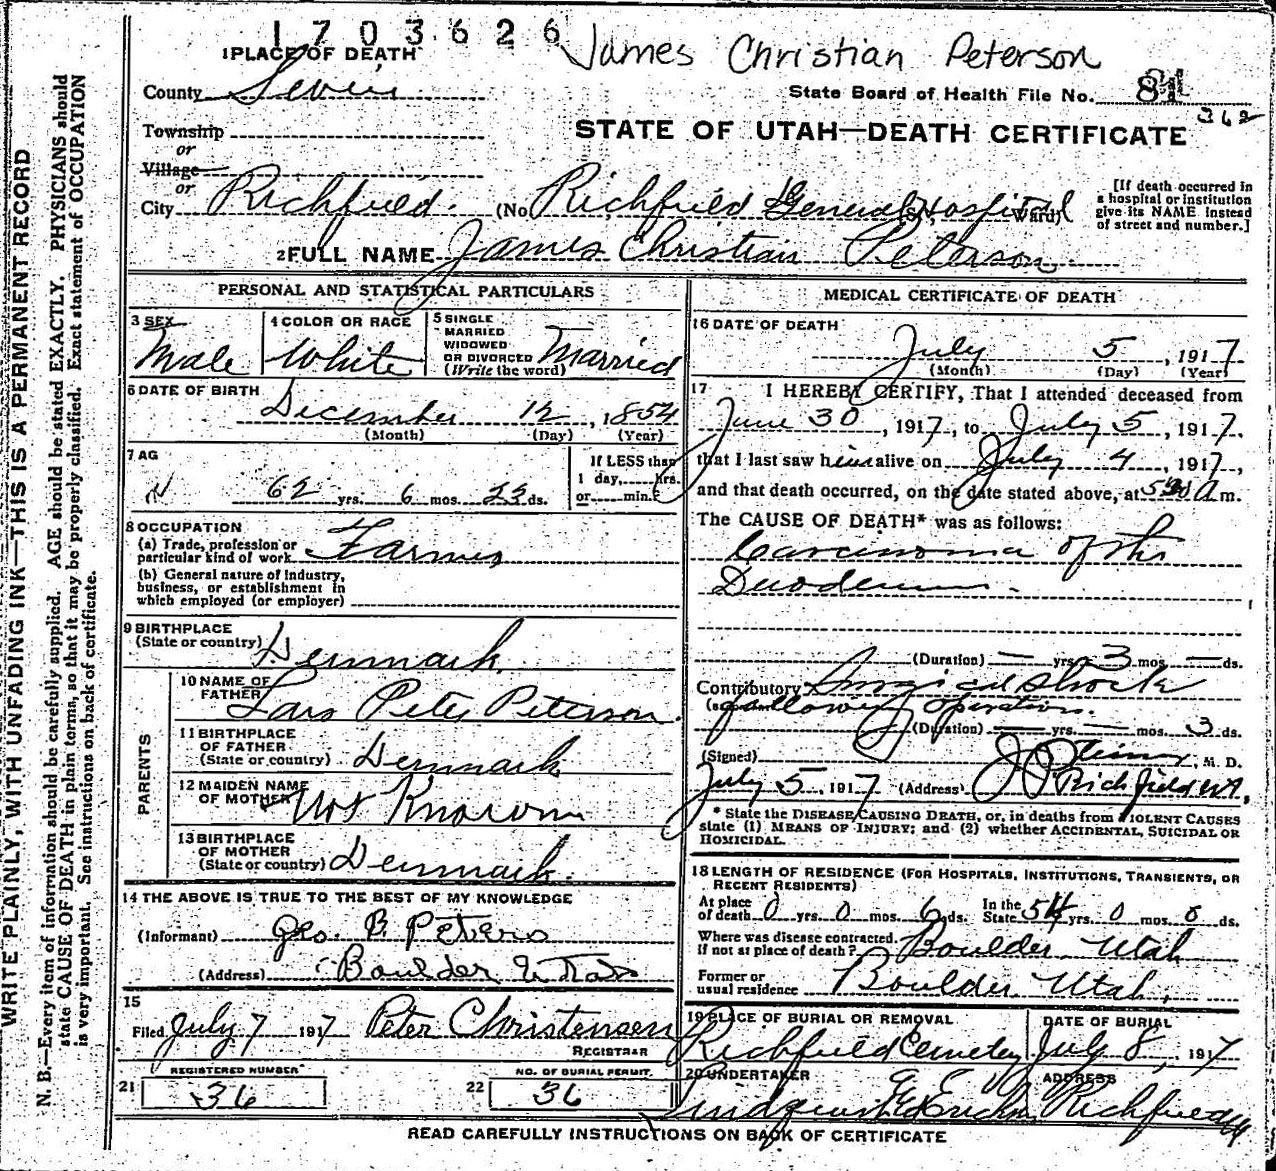 1703626
James Christian Peterson
1 PLACE OF DEATH
County Sevier
State Board of Health File No. 81
362
Township
or
Village
or
City Richfield. (No. Richfield General Hospital St., Ward)
STATE OF UTAH—DEATH CERTIFICATE
[If death occurred in
a hospital or institution
give its NAME instead
of street and number.]
2 FULL NAME James Christian Peterson
PERSONAL AND STATISTICAL PARTICULARS
3 SEX
Male
4 COLOR OR RACE
White
5 SINGLE
MARRIED
WIDOWED
OR DIVORCED
(Write the word) Married
6 DATE OF BIRTH
December 12, 1854
(Month) (Day) (Year)
7 AG
62 yrs. 6 mos. 23 ds.
If LESS than
1 day, hrs.
or min.?
8 OCCUPATION
(a) Trade, profession or
particular kind of work Farmer
(b) General nature of industry,
business, or establishment in
which employed (or employer)
9 BIRTHPLACE
(State or country) Denmark
PARENTS
10 NAME OF
FATHER Lars Peter Peterson.
11 BIRTHPLACE
OF FATHER
(State or country) Denmark
12 MAIDEN NAME
OF MOTHER Not Known
13 BIRTHPLACE
OF MOTHER
(State or country) Denmark.
14 THE ABOVE IS TRUE TO THE BEST OF MY KNOWLEDGE
(Informant) Geo. B. Peters
(Address) Boulder Utah
15
Filed July 7 1917 Peter Christensen
REGISTRAR
21 REGISTERED NUMBER
36
22 NO. OF BURIAL PERMIT.
36
MEDICAL CERTIFICATE OF DEATH
16 DATE OF DEATH
July 5, 1917
(Month) (Day) (Year)
17 I HEREBY CERTIFY, That I attended deceased from
June 30, 1917, to July 5, 1917,
that I last saw him alive on July 4, 1917,
and that death occurred, on the date stated above, at A m.
The CAUSE OF DEATH* was as follows:
Carcinoma of the
Duodenum.
(Duration) — yrs. 3 mos. — ds.
Contributory Surgical shock
following operation.
(Duration) — yrs. — mos. 3 ds.
(Signed) M. D.
July 5, 1917 (Address) Richfield Ut,
* State the DISEASE CAUSING DEATH, or, in deaths from VIOLENT CAUSES
state (1) MEANS OF INJURY; and (2) whether ACCIDENTAL, SUICIDAL OR
HOMICIDAL.
18 LENGTH OF RESIDENCE (FOR HOSPITALS, INSTITUTIONS, TRANSIENTS, OR
RECENT RESIDENTS)
At place
of death 0 yrs. 0 mos. 6 ds.
In the
State 54 yrs. 0 mos. 0 ds.
Where was disease contracted.
if not at place of death? Boulder Utah
Former or
usual residence Boulder Utah,
19 PLACE OF BURIAL OR REMOVAL
Richfield Cemetey
DATE OF BURIAL
July 8, 1917
20 UNDERTAKER
ADDRESS
Richfield
READ CAREFULLY INSTRUCTIONS ON BACK OF CERTIFICATE
WRITE PLAINLY, WITH UNFADING INK—THIS IS A PERMANENT RECORD
N. B.—Every item of information should be carefully supplied. AGE should be stated EXACTLY. PHYSICIANS should
state CAUSE OF DEATH in plain terms, so that it may be properly classified. Exact statement of OCCUPATION
is very important. See instructions on back of certificate.